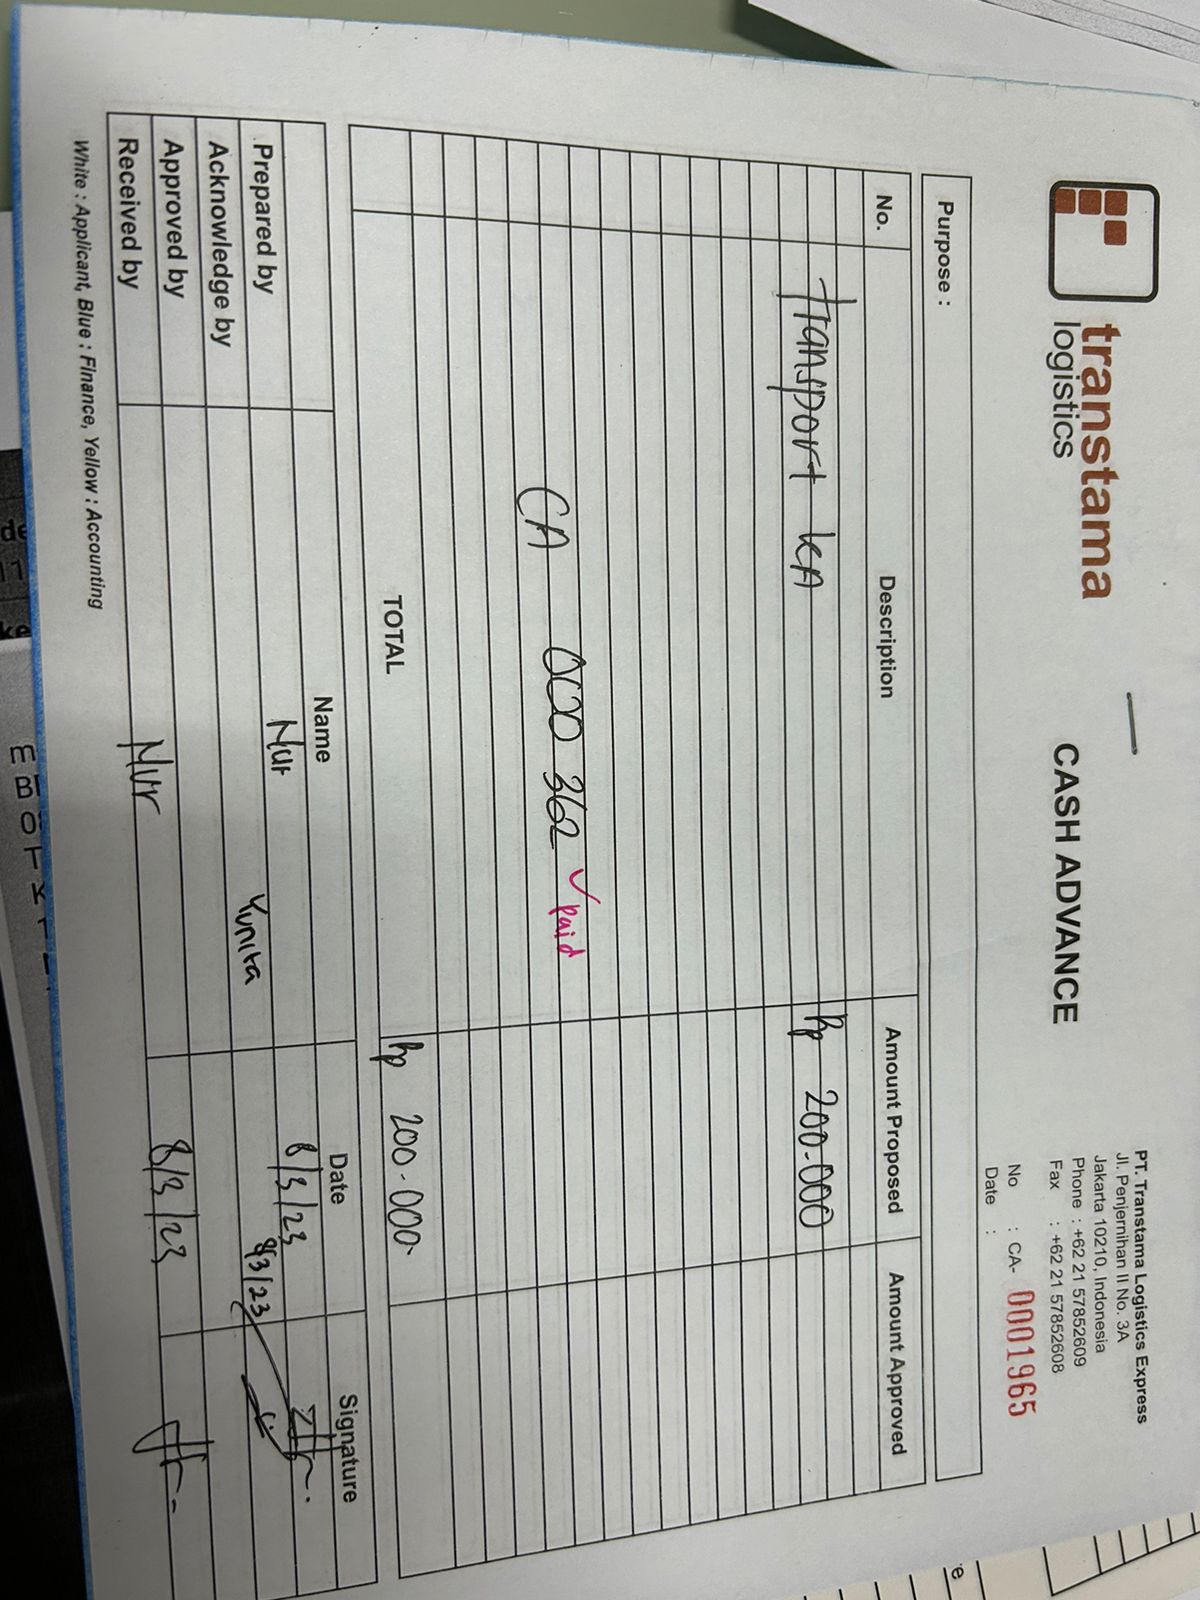 transtama
logistics
CASH ADVANCE
PT. Transtama Logistics Express
Jl. Penjernihan II No. 3A
Jakarta 10210, Indonesia
Phone : +62 21 57852609
Fax : +62 21 57852608
No : CA- 0001965
Date :
Purpose :
No. Description Amount Proposed Amount Approved
Transport KA Rp 200.000
CA 000 362 ✓ paid
TOTAL Rp 200.000
Name Date Signature
Prepared by Nur 8/3/23
Acknowledge by Yunita 8/3/23
Approved by
Received by Nur 8/3/23
White : Applicant, Blue : Finance, Yellow : Accounting